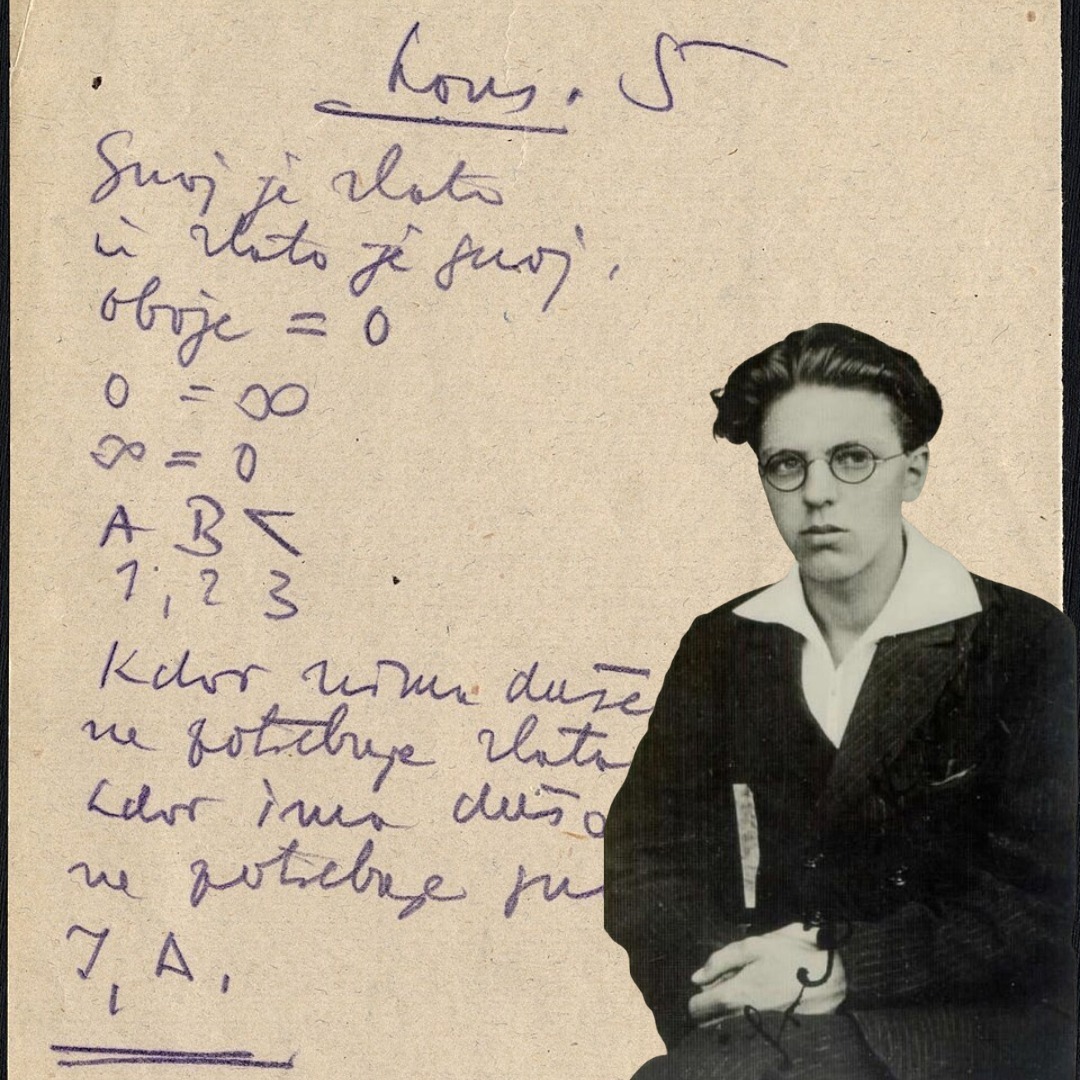 Kons. 5
Gnoj je zlato
in zlato je gnoj.
oboje = 0
0 = ∞
∞ = 0
A B <
1, 2 3
Kdor nima duše
ne potrebuje zlata
kdor ima dušo
ne potrebuje
I, A.